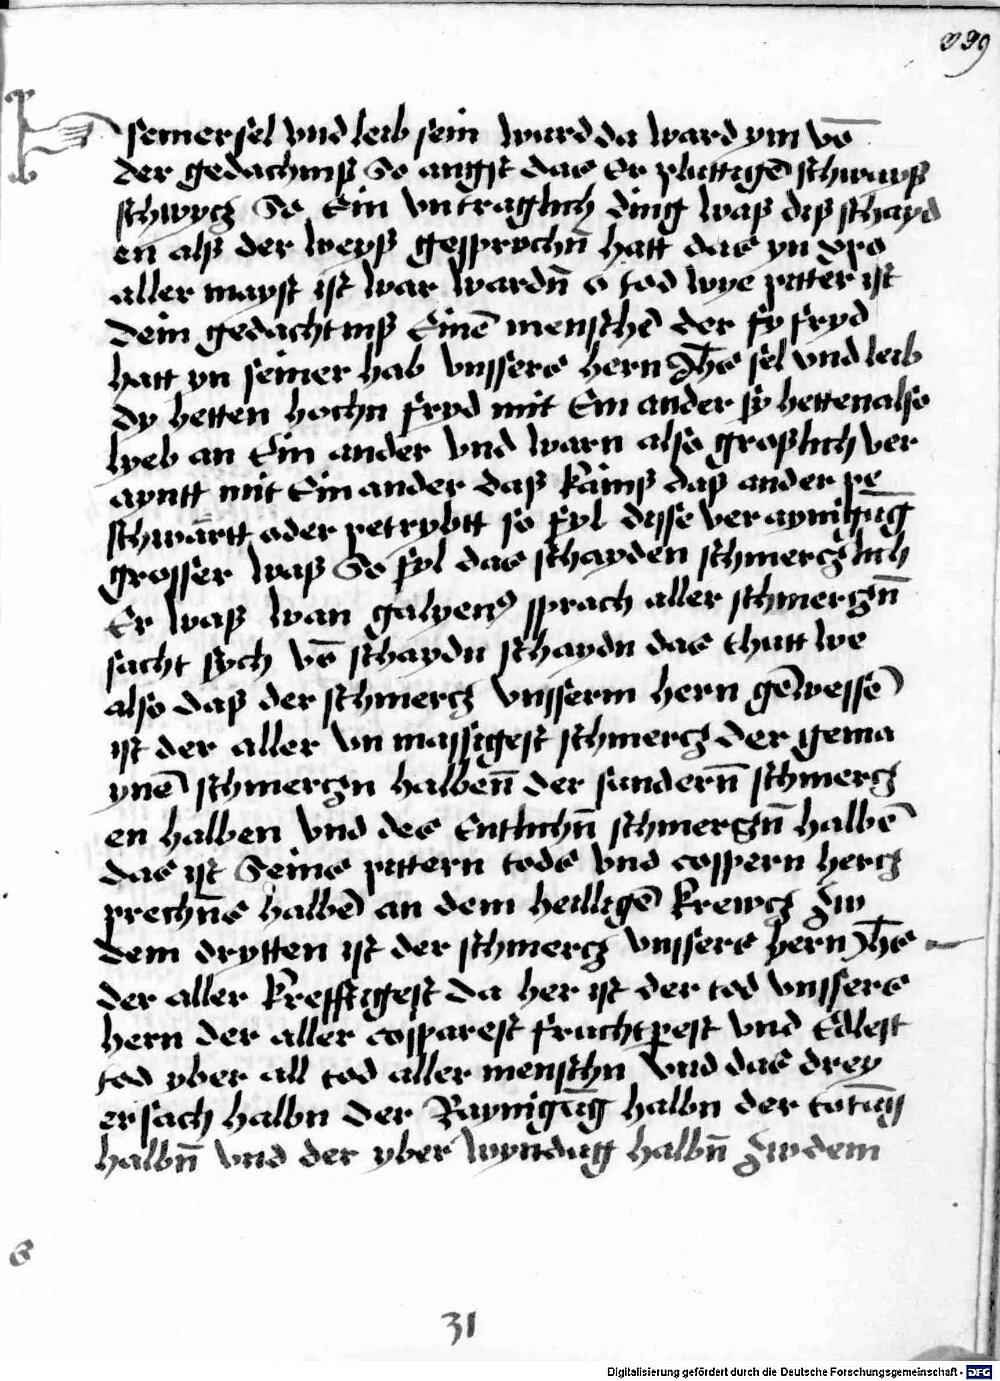 seiner sel vnd leib sein ward da ward ym võ
der gedachtnuß So angst das Er pluttigẽ schwayß
schwycz So Ein vntraglich ding waß diß schayd
en alß der weyß gesprochñ hatt das yn
aller mayst ist war wardñ o tod wye pitter ist
dein gedachtnuß Einẽ menschẽ der sy fryd
hatt yn seiner hab vnssers hern Jhs sel vnd leib
dy hetten hochn fryd mit Ein ander sy hetten also
lyeb an Ein ander vnd warn also groslich ver
ayntt mit Ein ander daß kains daß ander pe
schwartt oder petrybtt so fyl disse veraynigũg
grosser waß So fyl das schayden schmerczlich
Er waß wan galyenꝰ sprach aller schmerczñ
sacht sych võ schaydn schaydn das thutt we
also daß der schmercz vnsserm hern gẽwessẽ
ist der aller vnmassigest schmercz der gema
ynẽ schmerczn halbenñ der sundernñ schmercz
en halben vnd des Entlichñ schmerczñ halbẽ
das ist Seins pittern tods vnd cospern hercz
prechñs halbẽ an dem heilligẽ krewcz Zw
dem drytten ist der schmercz vnssers hern Jhs
der aller krefftigest da her ist der tod vnssers
hern der aller cosparest fruchtpest vnd Edlest
tod yber all tod aller menschn vnd das drey
ersach halbn der Raynigũg halbn der totũg
halbñ vnd der yber wyndũg halbñ Zw dem
31
Digitalisierung gefördert durch die Deutsche Forschungsgemeinschaft - DFG